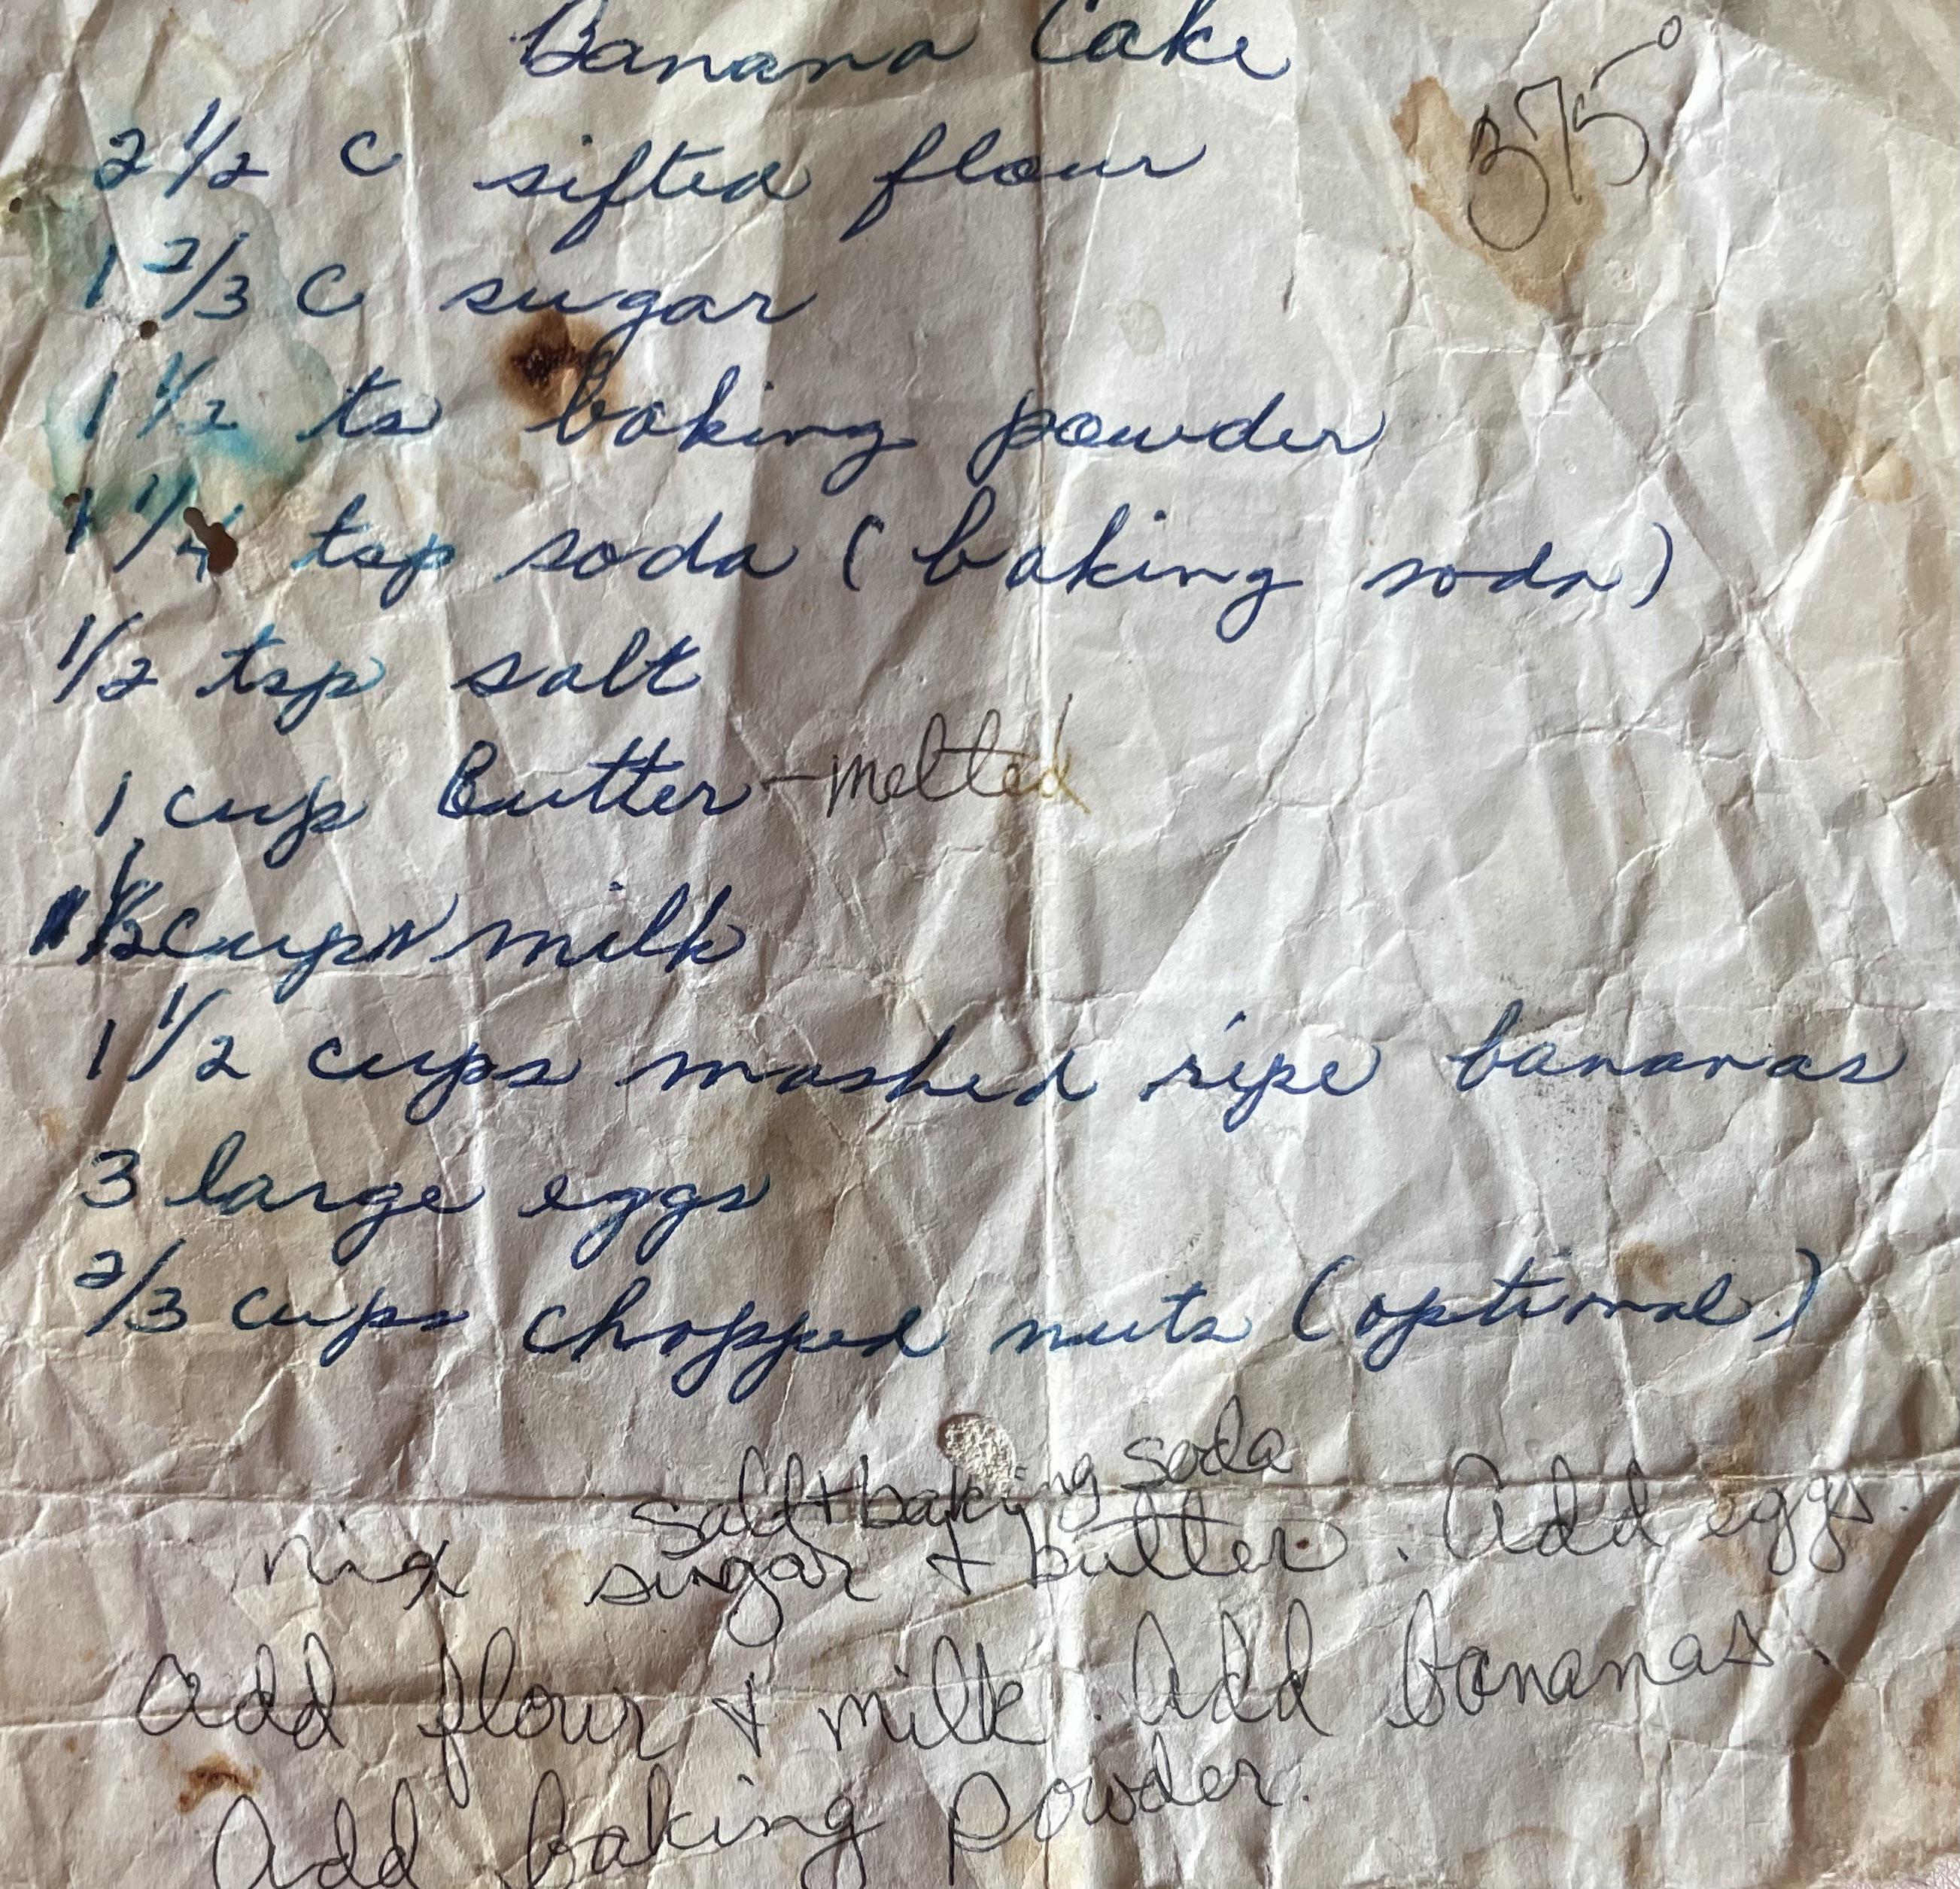 Banana Cake
375°
2 1/2 c sifted flour
1 2/3 c sugar
1 1/2 ts baking powder
1 1/4 tsp soda (baking soda)
1/2 tsp salt
1 cup Butter - melted
1/2 cup milk
1 1/2 cups mashed ripe bananas
3 large eggs
2/3 cups chopped nuts (optional)
salt + baking soda
mix sugar + butter. Add eggs.
Add flour + milk. Add bananas.
Add baking powder.